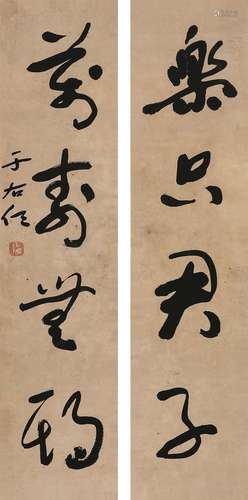 樂只君子
萬壽無疆
于右任